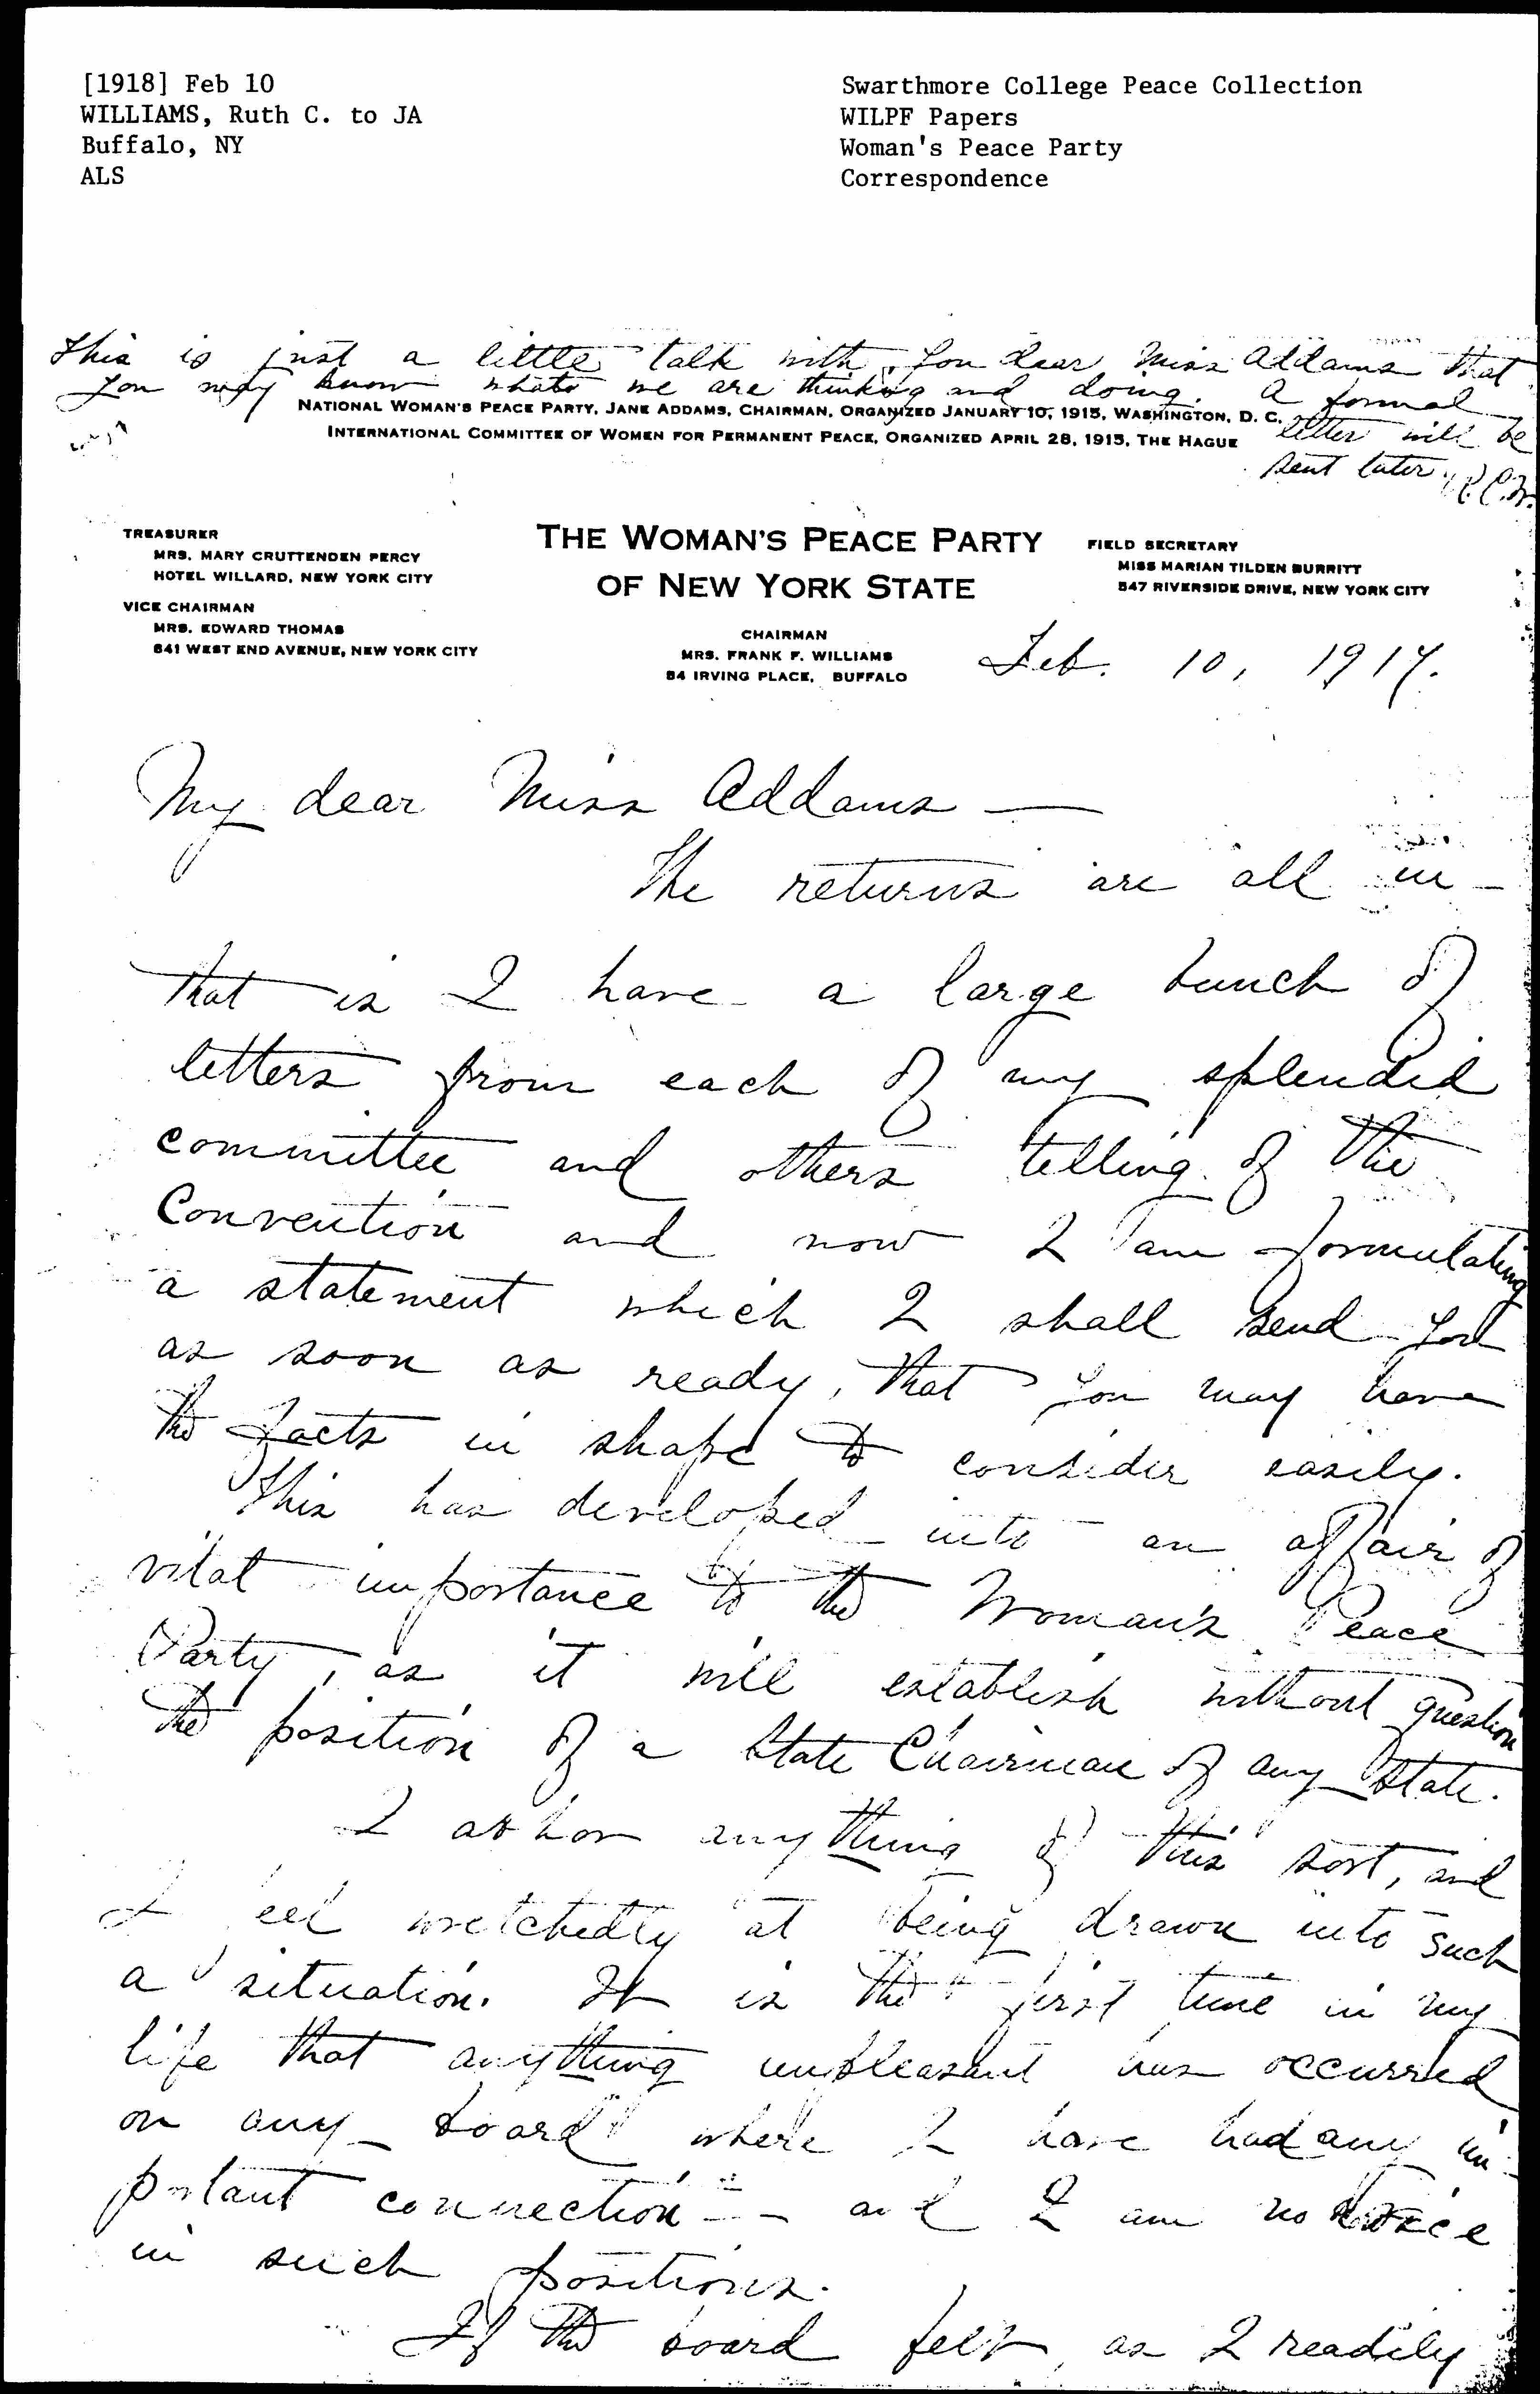 [1918] Feb 10
WILLIAMS, Ruth C. to JA
Buffalo, NY
ALS
Swarthmore College Peace Collection
WILPF Papers
Woman's Peace Party
Correspondence
This is just a little talk with you dear Miss Addams that
you may know what we are thinking and doing. A formal
letter will be
sent later. R.C.W.
NATIONAL WOMAN'S PEACE PARTY, JANE ADDAMS, CHAIRMAN, ORGANIZED JANUARY 10, 1915, WASHINGTON, D. C.
INTERNATIONAL COMMITTEE OF WOMEN FOR PERMANENT PEACE, ORGANIZED APRIL 28, 1915, THE HAGUE
TREASURER
MRS. MARY CRUTTENDEN PERCY
HOTEL WILLARD, NEW YORK CITY
VICE CHAIRMAN
MRS. EDWARD THOMAS
641 WEST END AVENUE, NEW YORK CITY
THE WOMAN'S PEACE PARTY
OF NEW YORK STATE
CHAIRMAN
MRS. FRANK F. WILLIAMS
84 IRVING PLACE, BUFFALO
FIELD SECRETARY
MISS MARIAN TILDEN BURRITT
547 RIVERSIDE DRIVE, NEW YORK CITY
Feb. 10, 1917.
My dear Miss Addams —
The returns are all in –
that is I have a large bunch of
letters from each of my splendid
committee and others telling of the
Convention and now I am formulating
a statement which I shall send you
as soon as ready, that you may have
the facts in shape to consider easily.
This has developed into an affair of
vital importance to the Woman's Peace
Party, as it will establish without question
the position of a State Chairman of any State.
I abhor anything of this sort, and
I feel wretchedly at being drawn into such
a situation. It is the first time in my
life that anything unpleasant has occurred
on any board where I have had any im-
portant connection – and I am no
in such positions.
If the board felt, as I readily